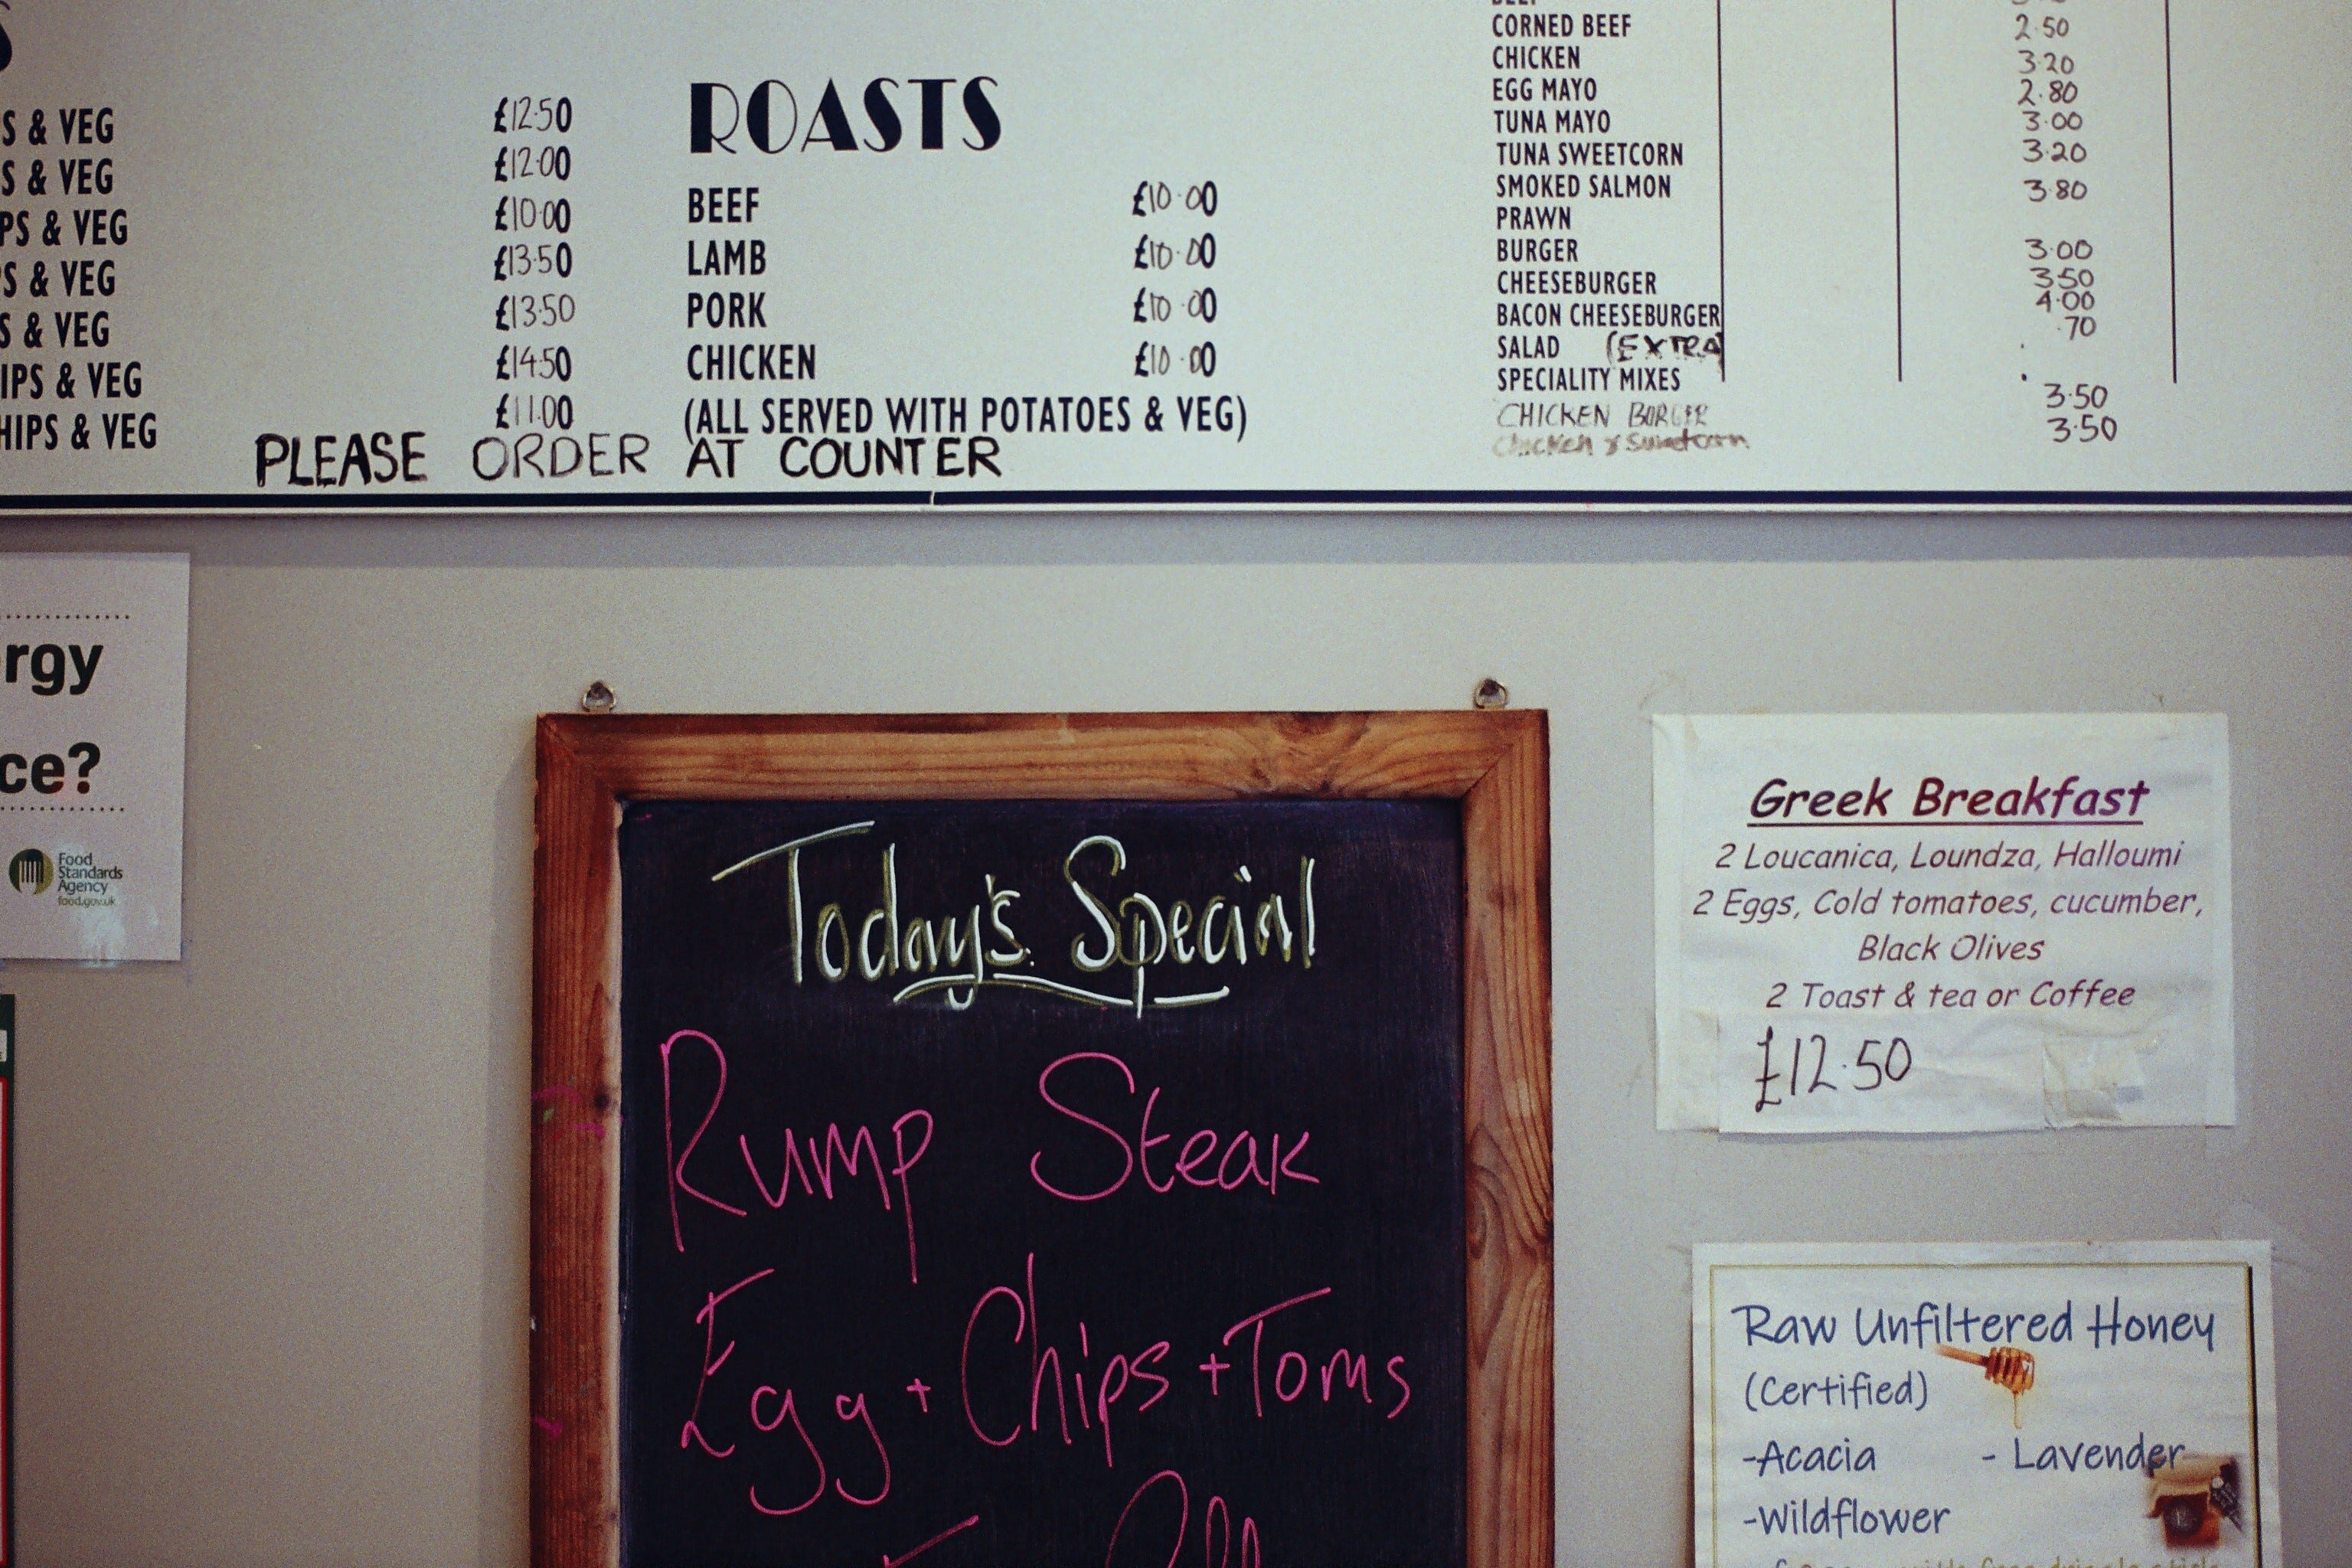 S & VEG £12.50
S & VEG £12.00
PS & VEG £10.00
S & VEG £13.50
S & VEG £13.50
IPS & VEG £14.50
HIPS & VEG £11.00
ROASTS
BEEF £10.00
LAMB £10.00
PORK £10.00
CHICKEN £10.00
(ALL SERVED WITH POTATOES & VEG)
PLEASE ORDER AT COUNTER
BEEF
CORNED BEEF 2.50
CHICKEN 3.20
EGG MAYO 2.80
TUNA MAYO 3.00
TUNA SWEETCORN 3.20
SMOKED SALMON 3.80
PRAWN
BURGER 3.00
CHEESEBURGER 3.50
BACON CHEESEBURGER 4.00
SALAD (EXTRA) .70
SPECIALITY MIXES
CHICKEN BURGER 3.50
Chicken & Sweetcorn 3.50
rgy
ce?
Food
Standards
Agency
food.gov.uk
Today's Special
Rump Steak
Egg + Chips + Toms
Greek Breakfast
2 Loucanica, Loundza, Halloumi
2 Eggs, Cold tomatoes, cucumber,
Black Olives
2 Toast & tea or Coffee
£12.50
Raw Unfiltered Honey
(Certified)
-Acacia - Lavender
-Wildflower